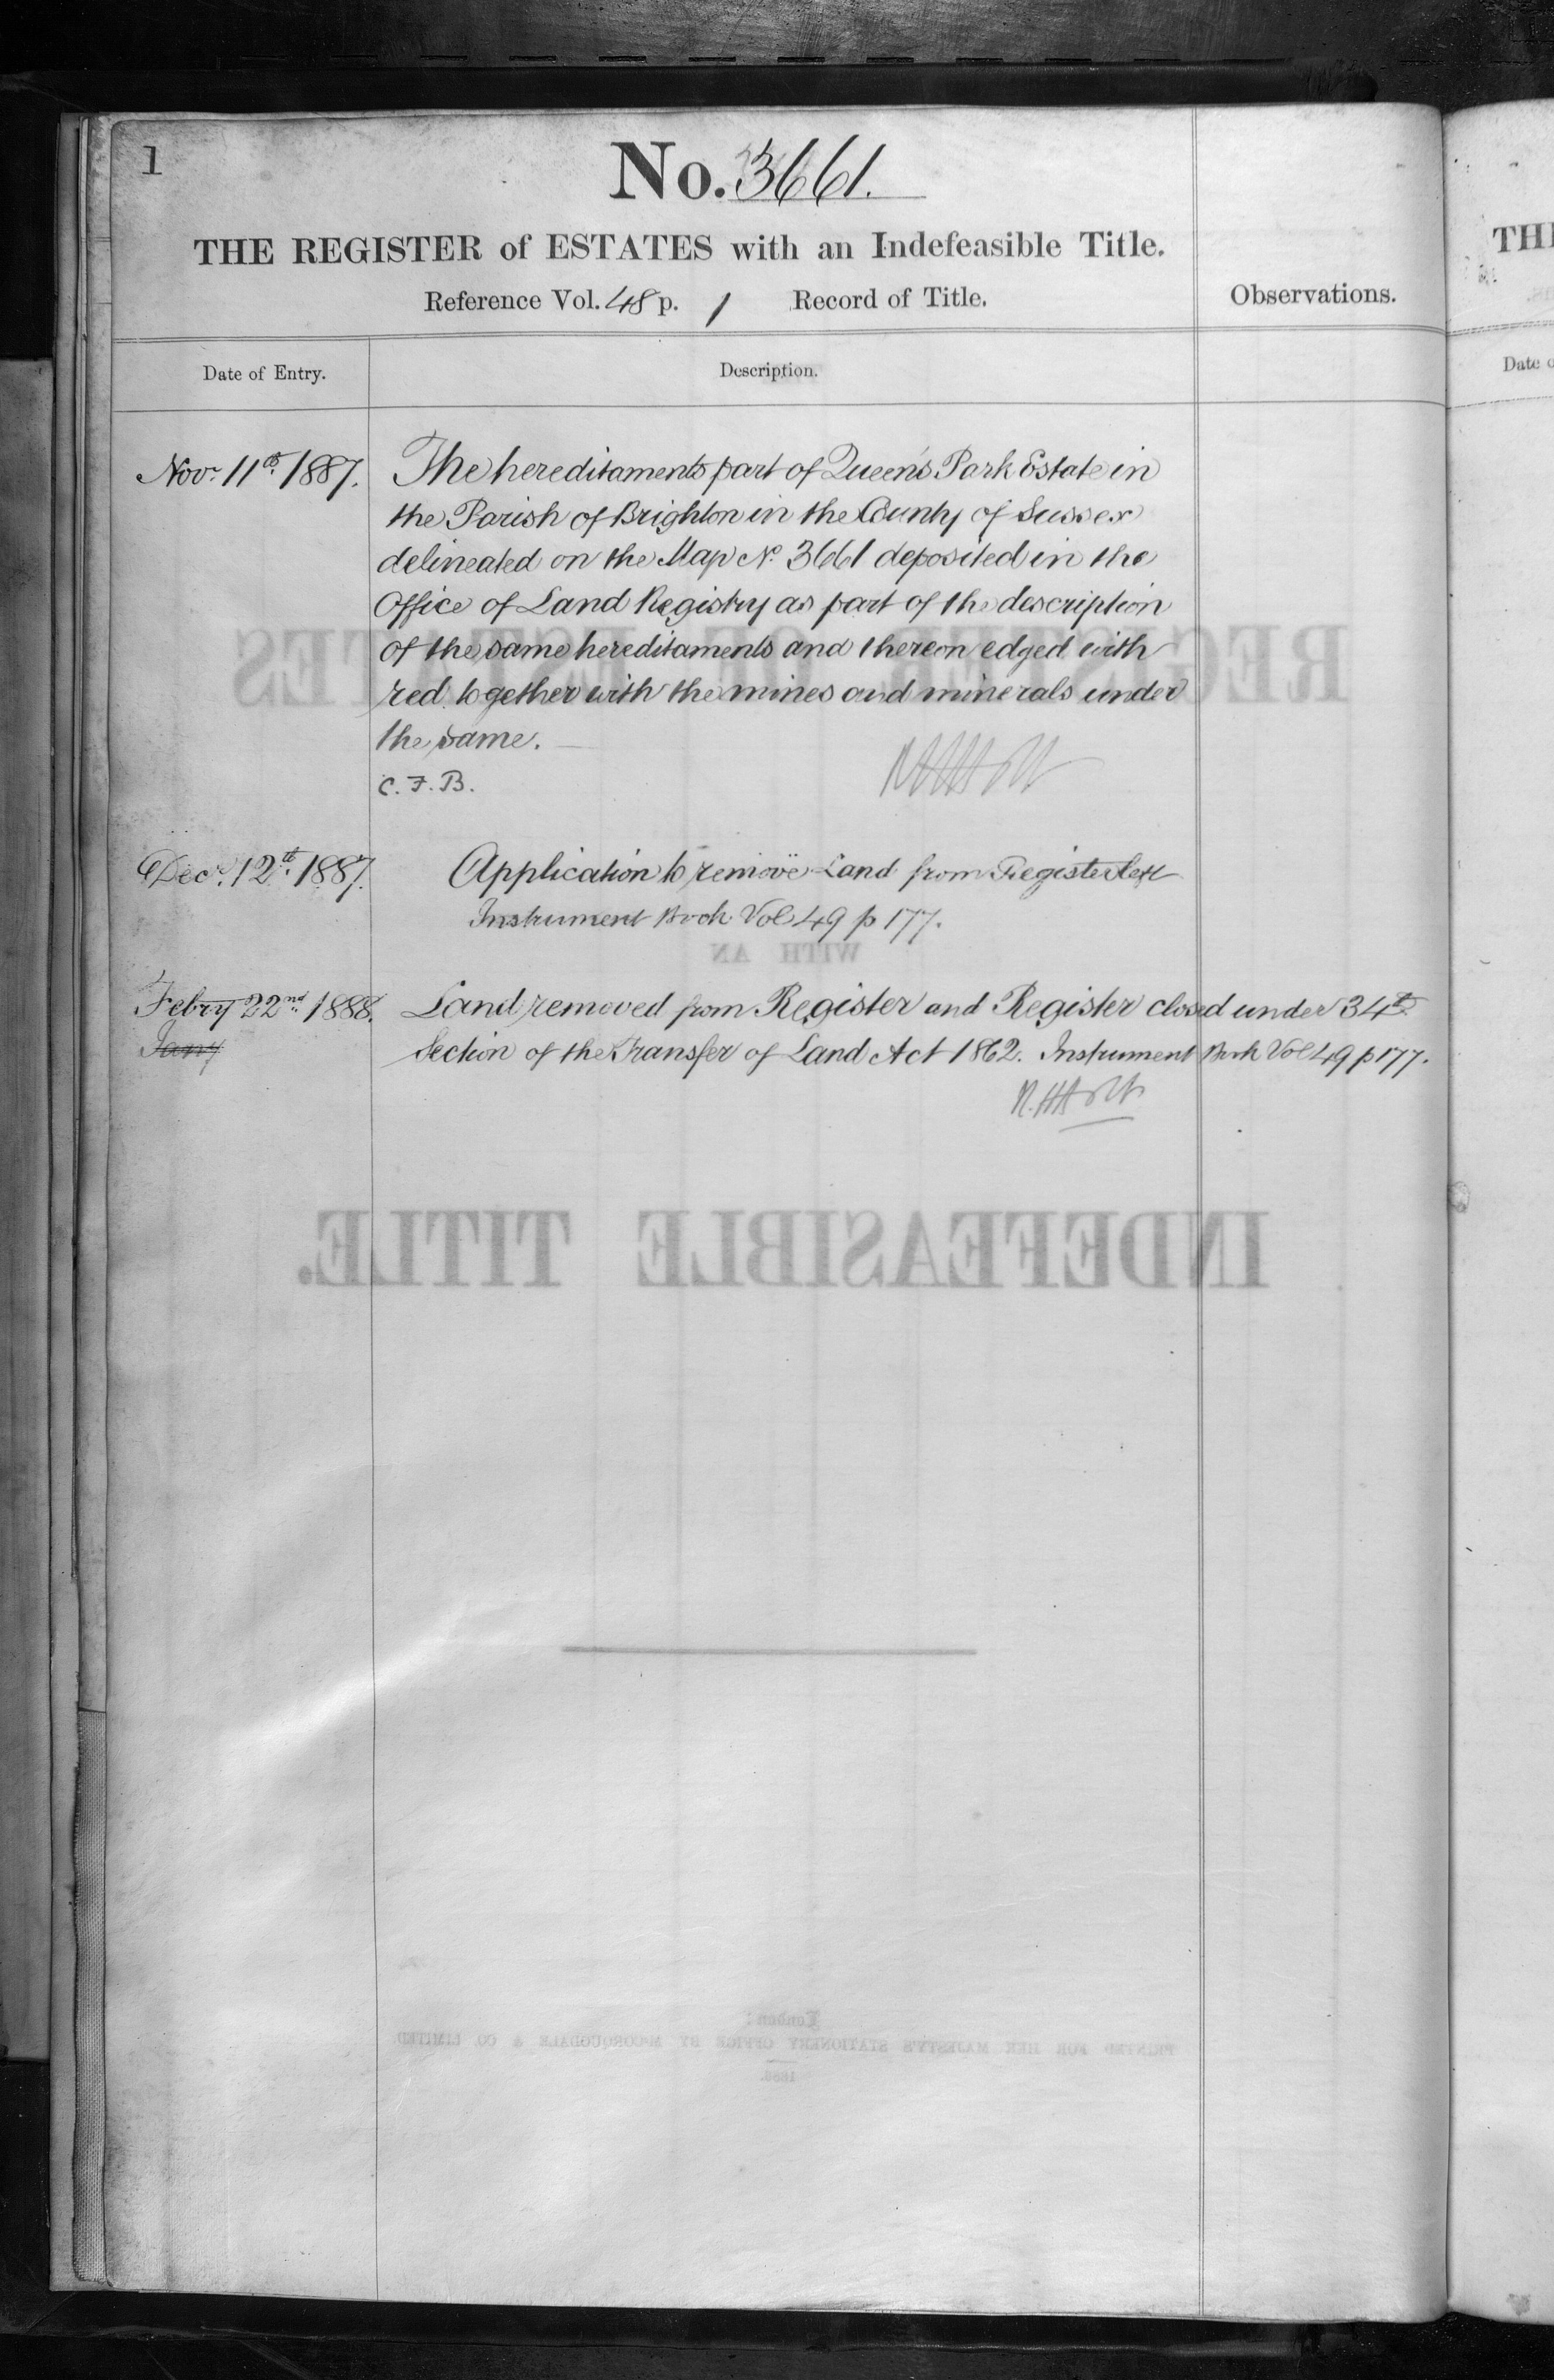 1
No. 3661.
THE REGISTER of ESTATES with an Indefeasible Title.
Reference Vol. 48 p. 1 Record of Title.
Observations.
Date of Entry.
Description.
Novr. 11th 1887.
The hereditaments part of Queen's Park Estate in
the Parish of Brighton in the County of Sussex
delineated on the Map No. 3661 deposited in the
Office of Land Registry as part of the description
of the same hereditaments and thereon edged with
red together with the mines and minerals under
the same.
C. F. B.
Decr. 12th 1887.
Application to remove Land from Register left
Instrument Book Vol 49 p 177.
Febry 22nd 1888.
Jany
Land removed from Register and Register closed under 34th
Section of the Transfer of Land Act 1862. Instrument Book Vol 49 p 177.
R. H. Holt
REGISTER OF ESTATES
WITH AN
INDEFEASIBLE TITLE.
London:
PRINTED FOR HER MAJESTY'S STATIONERY OFFICE BY McCORQUODALE & CO LIMITED
TH
Date o